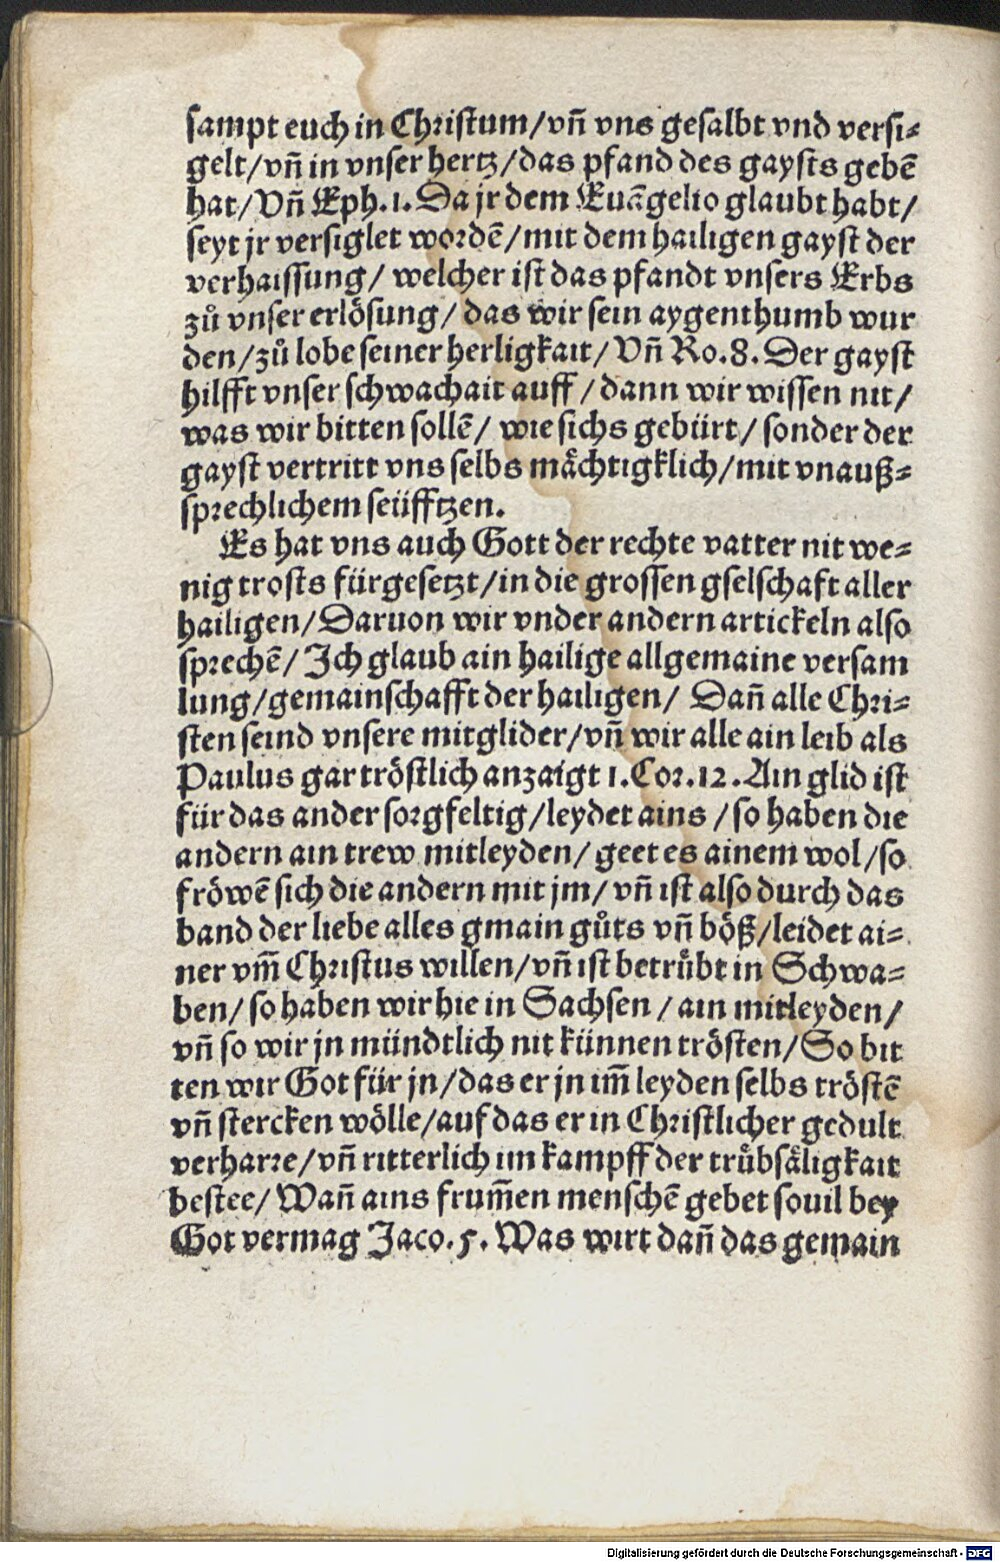 sampt euch in Christum/vñ vns gesalbt vnd versi⸗
gelt/vñ in vnser hertz/das pfand des gaysts gebẽ
hat/Vñ Eph.1.Da jr dem Euãgelio glaubt habt/
seyt jr versiglet wordẽ/mit dem hailigen gayst der
verhaissung/ welcher ist das pfandt vnsers Erbs
zů vnser erlösung/ das wir sein aygenthumb wur
den/zů lobe seiner herligkait/Vñ Ro.8.Der gayst
hilfft vnser schwachait auff/dann wir wissen nit/
was wir bitten sollẽ/ wie sichs gebürt/sonder der
gayst vertritt vns selbs mächtigklich/mit vnauß⸗
sprechlichem seüfftzen.
Es hat vns auch Gott der rechte vatter nit we⸗
nig trosts fürgesetzt/in die grossen gselschaft aller
hailigen/Daruon wir vnder andern artickeln also
sprechẽ/Ich glaub ain hailige allgemaine versam
lung/gemainschafft der hailigen/ Dañ alle Chri⸗
sten seind vnsere mitglider/vñ wir alle ain leib als
Paulus gar tröstlich anzaigt 1.Cor.12.Ain glid ist
für das ander sorgfeltig/leydet ains/so haben die
andern ain trew mitleyden/ geet es ainem wol/so
fröwẽ sich die andern mit jm/ vñ ist also durch das
band der liebe alles gmain gůts vñ böß/leidet ai⸗
ner vm̃ Christus willen/vñ ist betrübt in Schwa⸗
ben/so haben wir hie in Sachsen/ain mitleyden/
vñ so wir jn mündtlich nit künnen trösten/So bit
ten wir Got für jn/das er jn im̃ leyden selbs tröstẽ
vñ stercken wölle/auf das er in Christlicher gedult
verharre/vñ ritterlich im kampff der trübsäligkait
bestee/Wañ ains frum̃en menschẽ gebet souil bey
Got vermag Jaco.5.Was wirt dañ das gemain
Digitalisierung gefördert durch die Deutsche Forschungsgemeinschaft - DFG